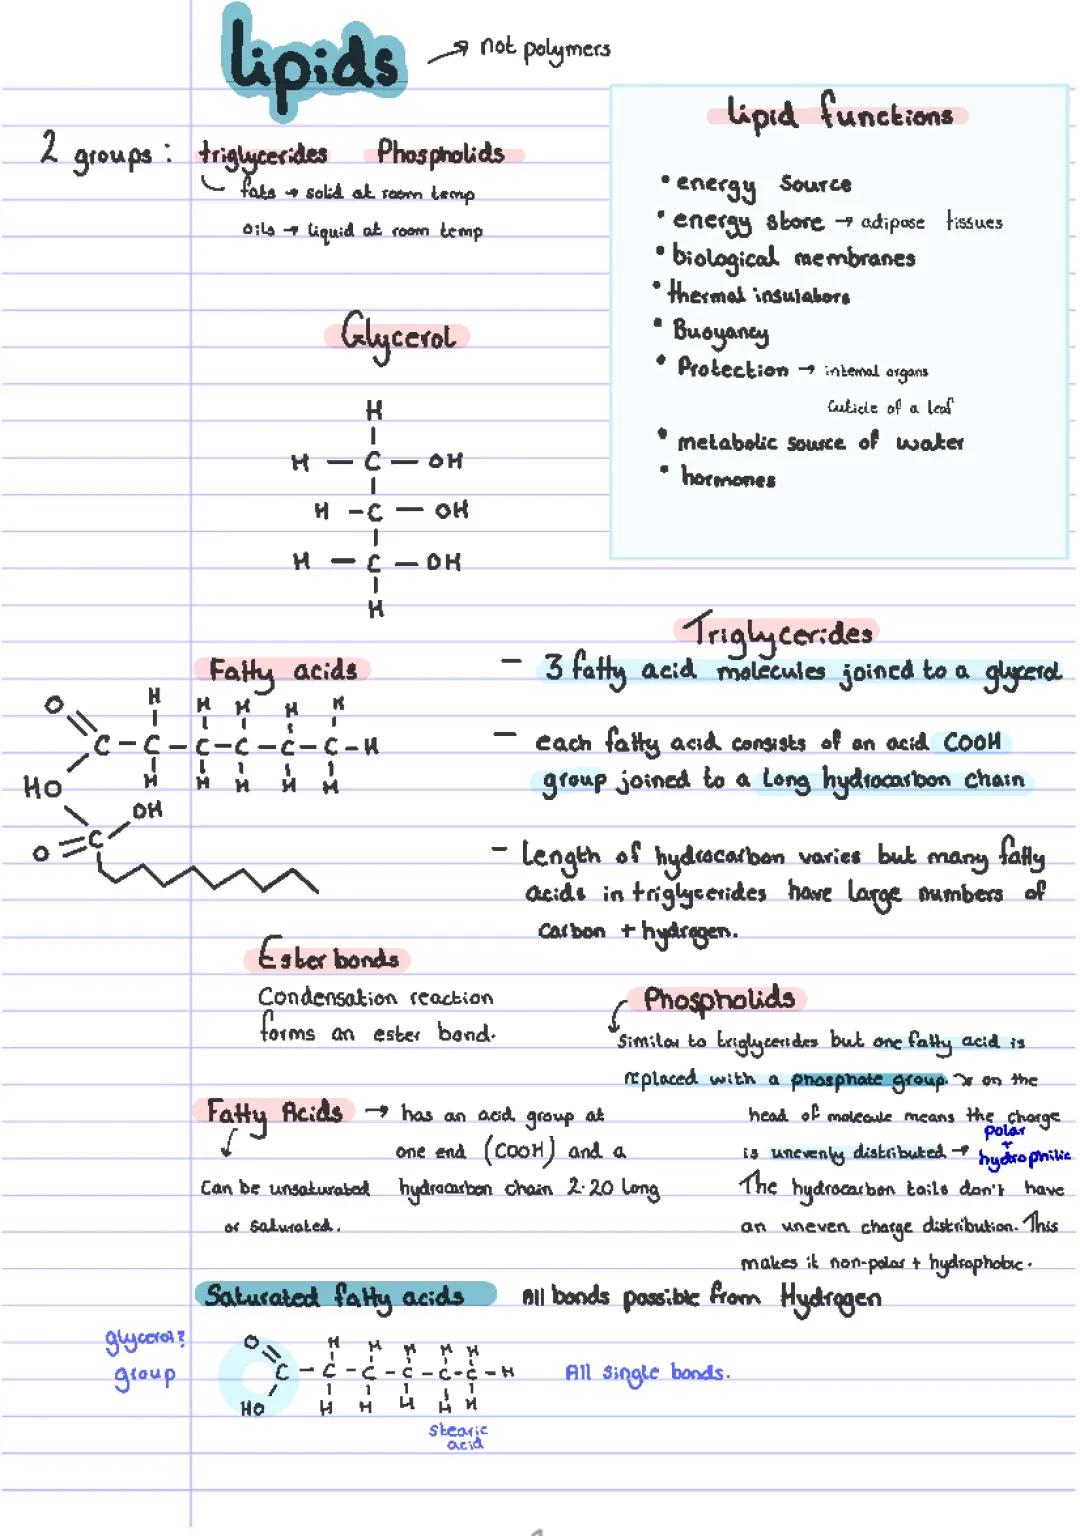 lipids → not polymers
2 groups : triglycerides Phospholids
fats → solid at room temp
oils → liquid at room temp
lipid functions
• energy Source
• energy store → adipose tissues
• biological membranes
• thermal insulators
• Buoyancy
• Protection → internal organs
Cuticle of a leaf
• metabolic source of water
• hormones
Glycerol
H
H — C — OH
H - C — OH
H — C — OH
H
Fatty acids
O H H H H H
C - C - C - C - C - C - H
HO H H H H H
OH
O = C
Triglycerides
- 3 fatty acid molecules joined to a glycerol
- each fatty acid consists of an acid COOH
group joined to a long hydrocarbon chain
- Length of hydrocarbon varies but many fatty
acids in triglycerides have large numbers of
carbon + hydrogen.
Ester bonds
Condensation reaction
forms an ester bond.
Phospholids
Similar to triglycerides but one fatty acid is
replaced with a phosphate group. → on the
head of molecule means the charge
is unevenly distributed → polar
+
hydrophilic
The hydrocarbon tails don't have
an uneven charge distribution. This
makes it non-polar + hydrophobic.
Fatty Acids → has an acid group at
one end (COOH) and a
hydrocarbon chain 2-20 long
Can be unsaturated
or saturated.
Saturated fatty acids All bonds possible from Hydrogen
glycerol?
group
O H H H H H
C - C - C - C - C - C - H
HO H H H H H
stearic
acid
All single bonds.